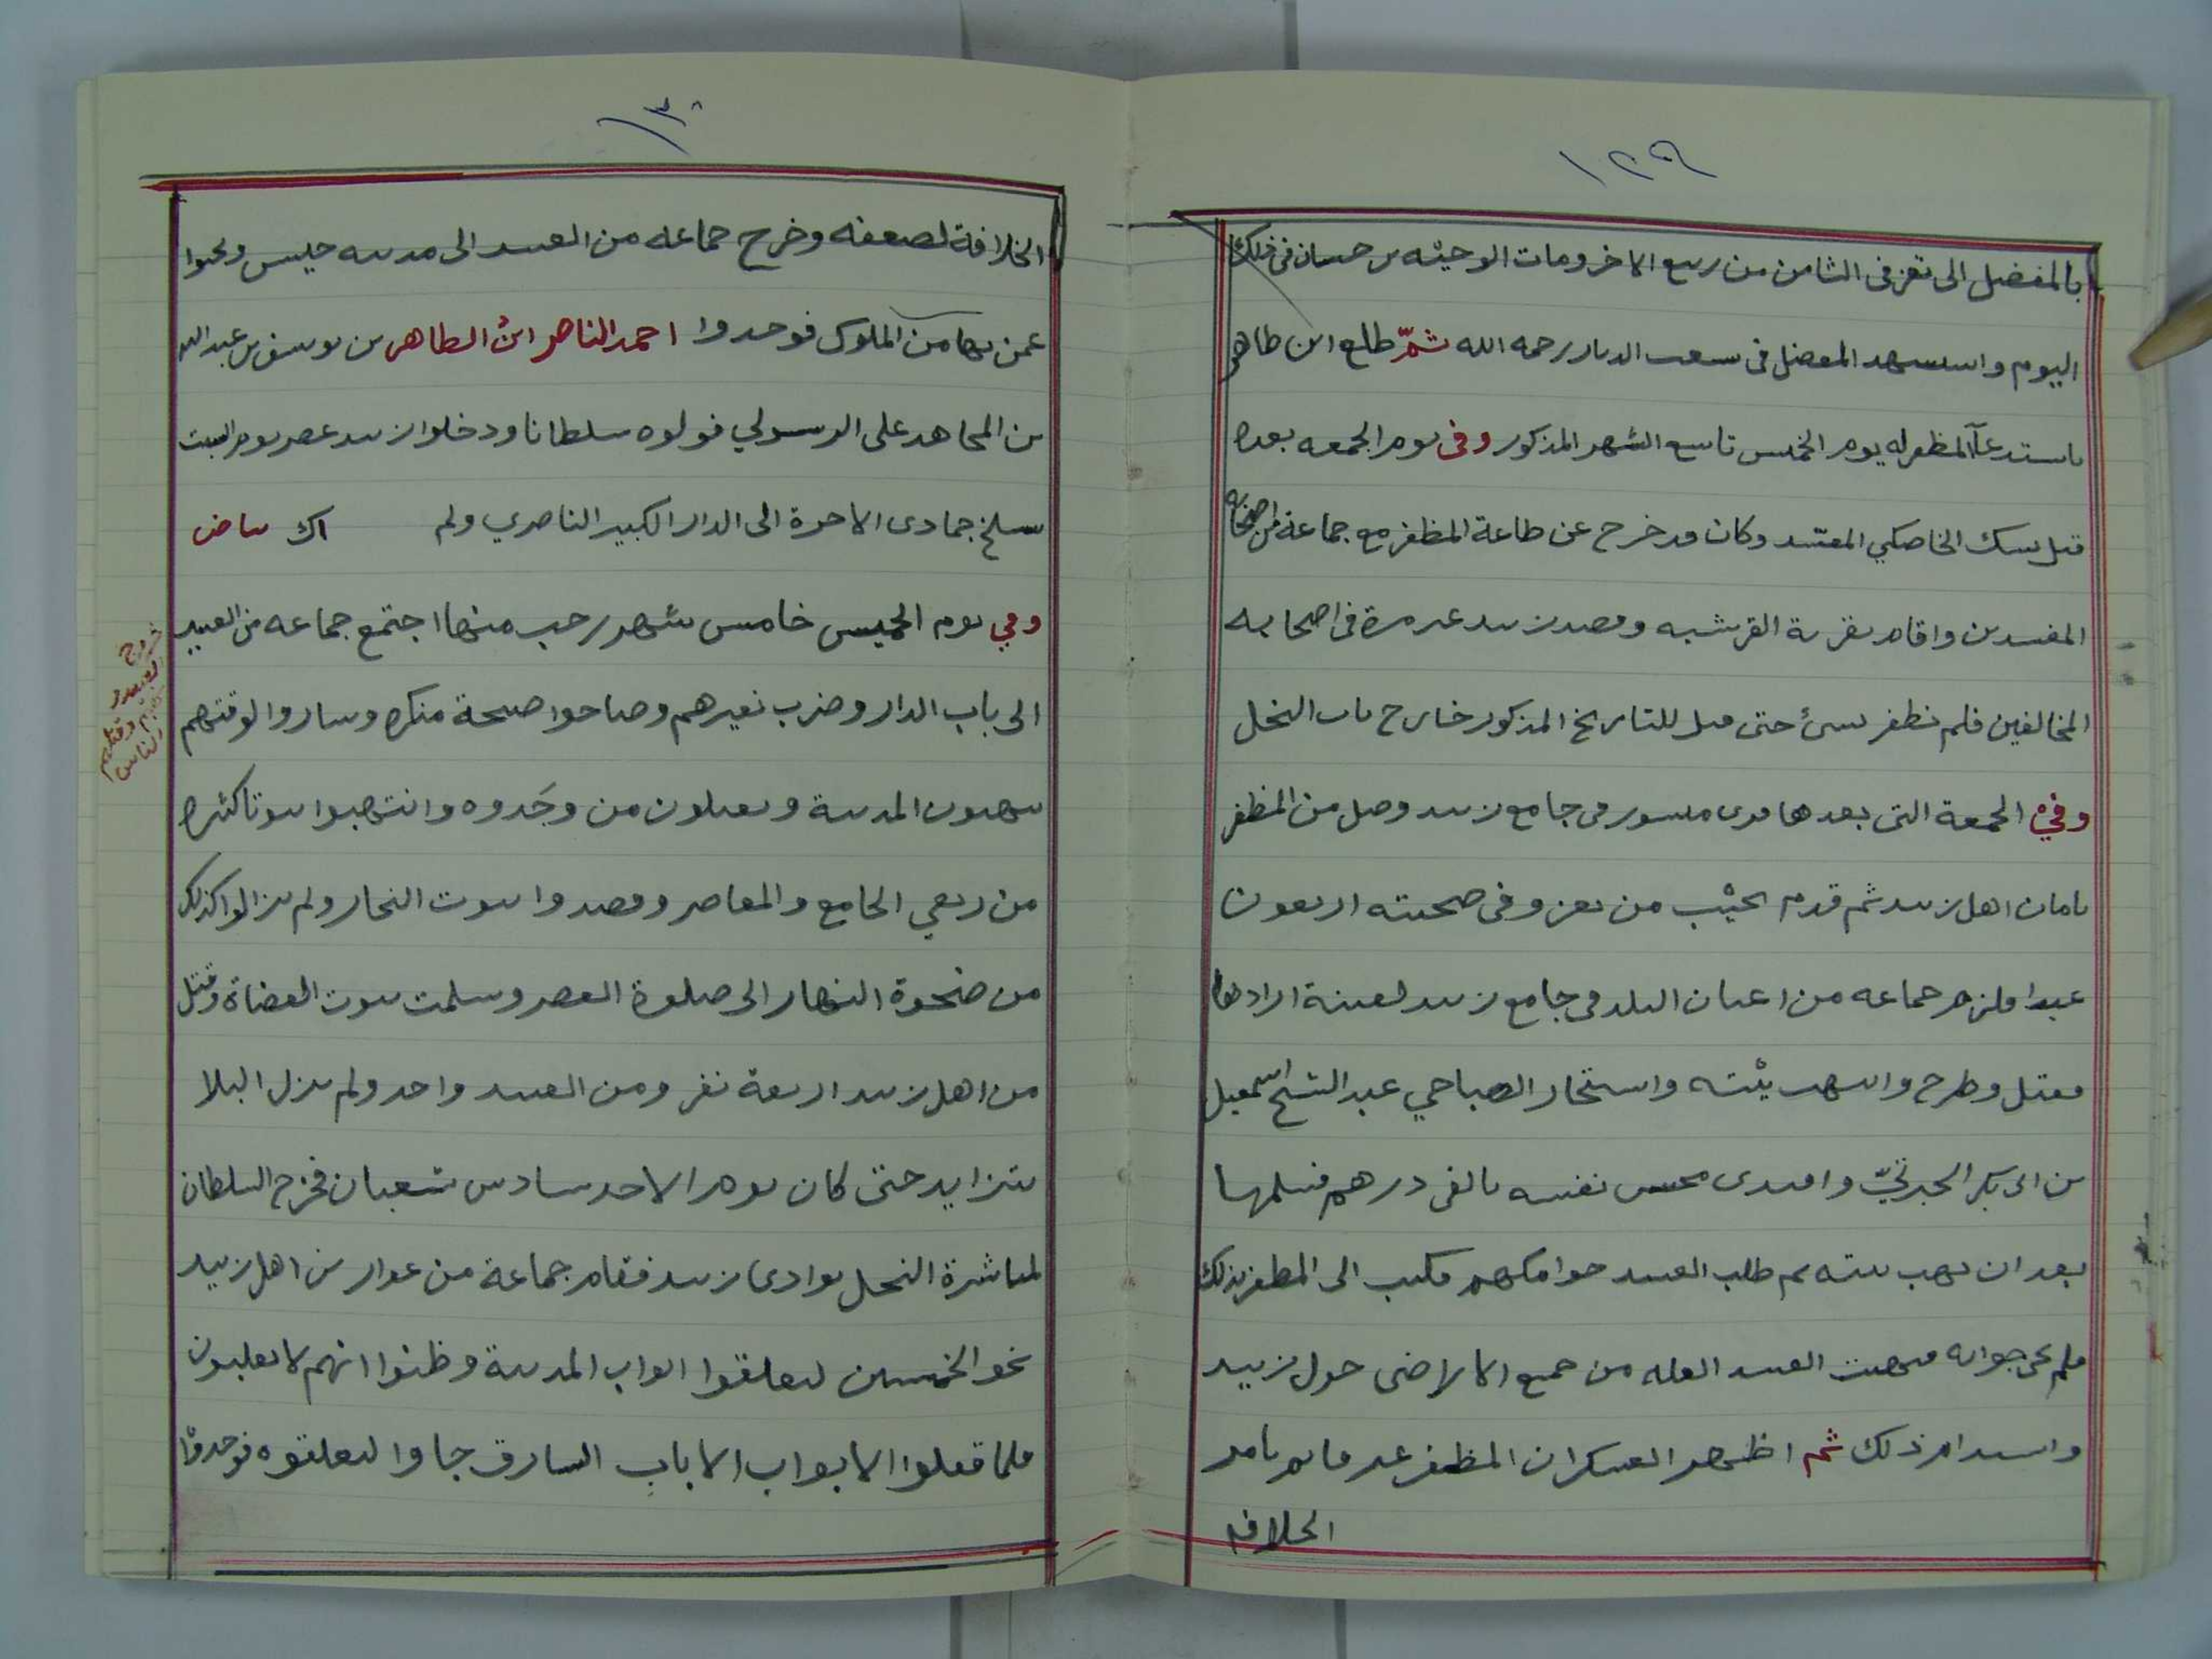 ١٢٩
بالمفضل الى تعز فى الثامن من ربيع الاخر ومات الوحيه بن حسان فى ذلك
اليوم واستشهد المفضل فى سعب الدبار رحمه الله ثمّ طلع ابن طاهر
باستدعآ المظفر له يوم الخميس تاسع الشهر المذكور وفى يوم الجمعه بعده
قتل بسك الخاصكي المفسد وكان قد خرج عن طاعة المظفر مع جماعة من اصحابه
المفسدين واقام بقرية القرشيه وقصد زبيد غير مرة فى اصحابه
المخالفين فلم يظفر بشئ حتى قتل للتاريخ المذكور خارج باب النخل
وفي الجمعة التى بعدها قرئ منشور فى جامع زبيد وصل من المظفر
بامان اهل زبيد ثم قدم من تعز وفى صحبته اربعون
عبدا فلزم جماعه من اعيان البلد فى جامع زبيد لفتنة ارادها
فقتل وطرح وانتهب بيته واستجار الصباحي عبد الشيخ اسمعيل
بن ابى بكر الجبرتيّ وافتدى نفسه بالفى درهم فسلمها
بعد ان نهب بيته ثم طلب العبيد جوامكهم فكتب الى المظفر بذلك
فلم جوابه فنهبت العبيد الغله من جميع الاراضى حول زبيد
واستدام ذلك ثم اظهر العسكر ان المظفر غير قائم بامر
الخلافه
١٣٠
الخلافة لضعفه وخرج جماعه من العبيد الى مدينه حيس وبحثوا
عمن بها من الملوك فوجدوا احمد الناصر ابن الطاهر بن يوسف بن عبد الله
بن المجاهد على الرسولي فولوه سلطانا ودخلوا زبيد عصر يوم السبت
سلخ جمادى الاخرة الى الدار الكبير الناصري ولم اك بياض
وفي يوم الخميس خامس شهر رجب منها اجتمع جماعه من العبيد
الى باب الدار وضرب نفيرهم وصاحوا صيحة منكره وساروا لوقتهم
ينهبون المدينة ويقتلون من وجَدوه وانتهبوا بيوتا كثيره
من ربعي الجامع والمعاصر وقصدوا بيوت التجار ولم يزالوا كذلك
من ضحوة النهار الى صلوة العصر وسلمت بيوت القضاة وقتل
من اهل زبيد اربعة نفر ومن العبيد واحد ولم يزل البلا
يتزايد حتى كان يوم الاحد سادس شعبان فخرج السلطان
لمباشرة النخل بوادى زبيد فقام جماعة من عوارين اهل زبيد
نحو الخمسين ليغلقوا ابواب المدينة وظنوا انهم لا يغلبون
فلما قفلوا الابواب الا باب الشبارق جاوا ليغلقوه فوجدوا
خروج العبيد و وقتلهم الناس